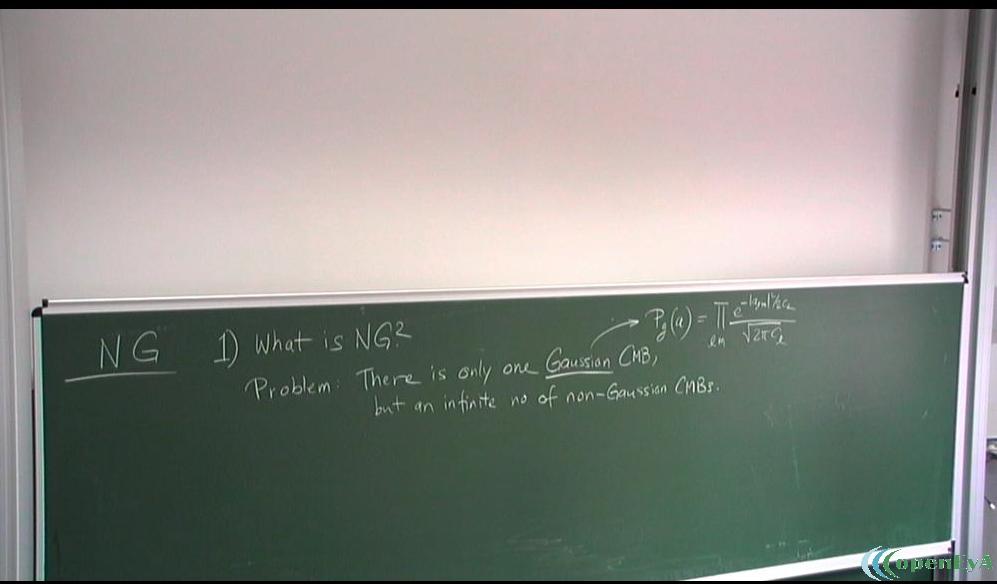 NG
1) What is NG?
P_g(a) = ∏_{lm} e^{-|a_{lm}|²/2C_l} / √(2πC_l)
Problem: There is only one Gaussian CMB,
but an infinite no of non-Gaussian CMBs.
openEyA